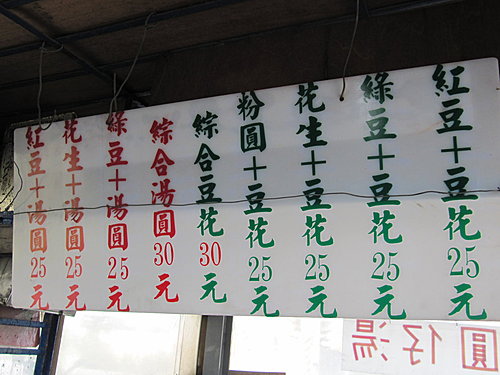 紅豆+豆花25元
綠豆+豆花25元
花生+豆花25元
粉圓+豆花25元
綜合豆花30元
綜合湯圓30元
綠豆+湯圓25元
花生+湯圓25元
紅豆+湯圓25元
圓仔湯